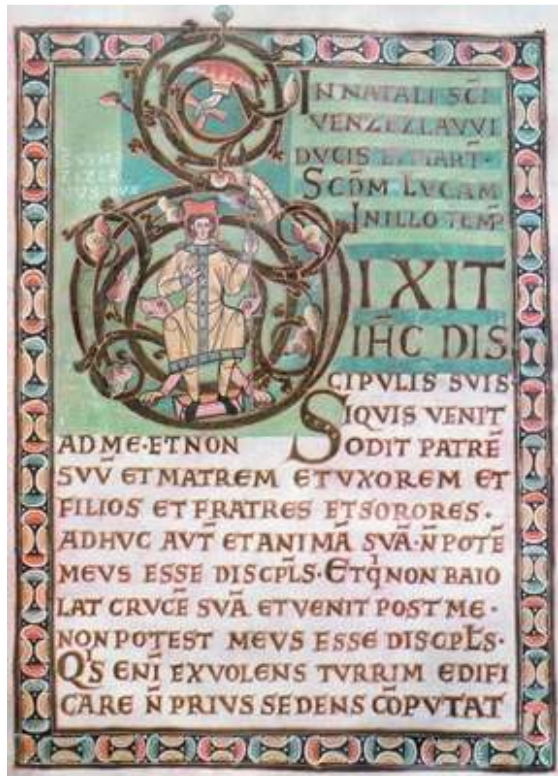 IN NATALI SC̄I
VENZEZLAVVI
DVCIS ET MART·
SCD̄M LVCAM
IN ILLO TEMP̄
DIXIT
IH̄C DIS
CIPVLIS SVIS·
SIQVIS VENIT
AD ME·ET NON SODIT PATRĒ
SVV̄ ET MATREM ET VXOREM ET
FILIOS ET FRATRES ET SORORES·
ADHVC AVT̄ ET ANIMĀ SVĀ·N̄ POTĒ
MEVS ESSE DISCPL̄S·ET Q̇ NON BAIO
LAT CRVCĒ SVĀ ET VENIT POST ME·
NON POTEST MEVS ESSE DISCPL̄S·
QİS ENĪ EX VOLENS TVRRIM EDIFI
CARE N̄ PRIVS SEDENS CŌPVTAT